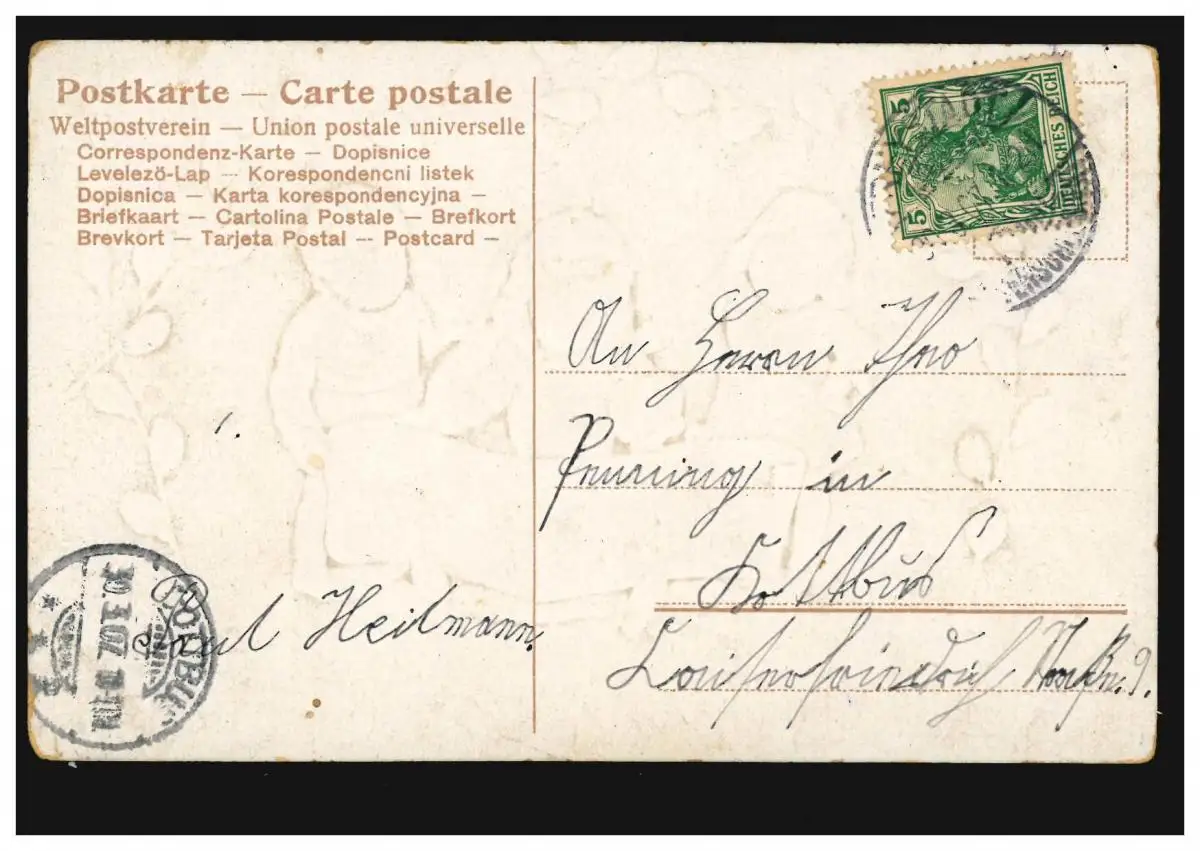 Postkarte — Carte postale
Weltpostverein — Union postale universelle
Correspondenz-Karte — Dopisnice
Levelező-Lap — Korespondencni listek
Dopisnica — Karta korespondencyjna —
Briefkaart — Cartolina Postale — Brefkort
Brevkort — Tarjeta Postal — Postcard —
5 DEUTSCHES REICH 5
An Herrn Theo
Penning in
Kottbus
Straße 9.
1.
Paul Heilmann.
COTTBUS
30.3.07.